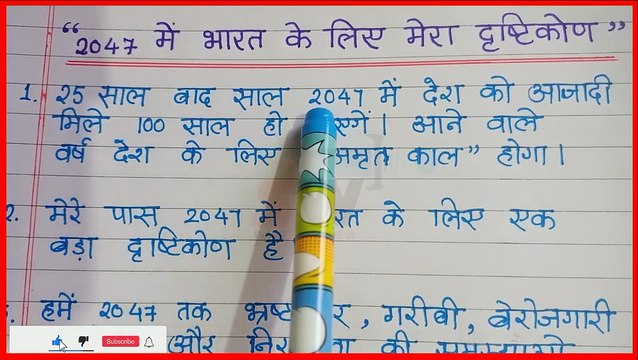 “2047 में भारत के लिए मेरा दृष्टिकोण”
1. 25 साल बाद साल 2047 में देश को आजादी
मिले 100 साल हो एगें। आने वाले
वर्ष देश के लिए अमृत काल” होगा।
2. मेरे पास 2047 में रत के लिए एक
बड़ा दृष्टिकोण है
हमें 2047 तक भ्रष्ट र, गरीबी, बेरोजगारी
(और की
Subscribe